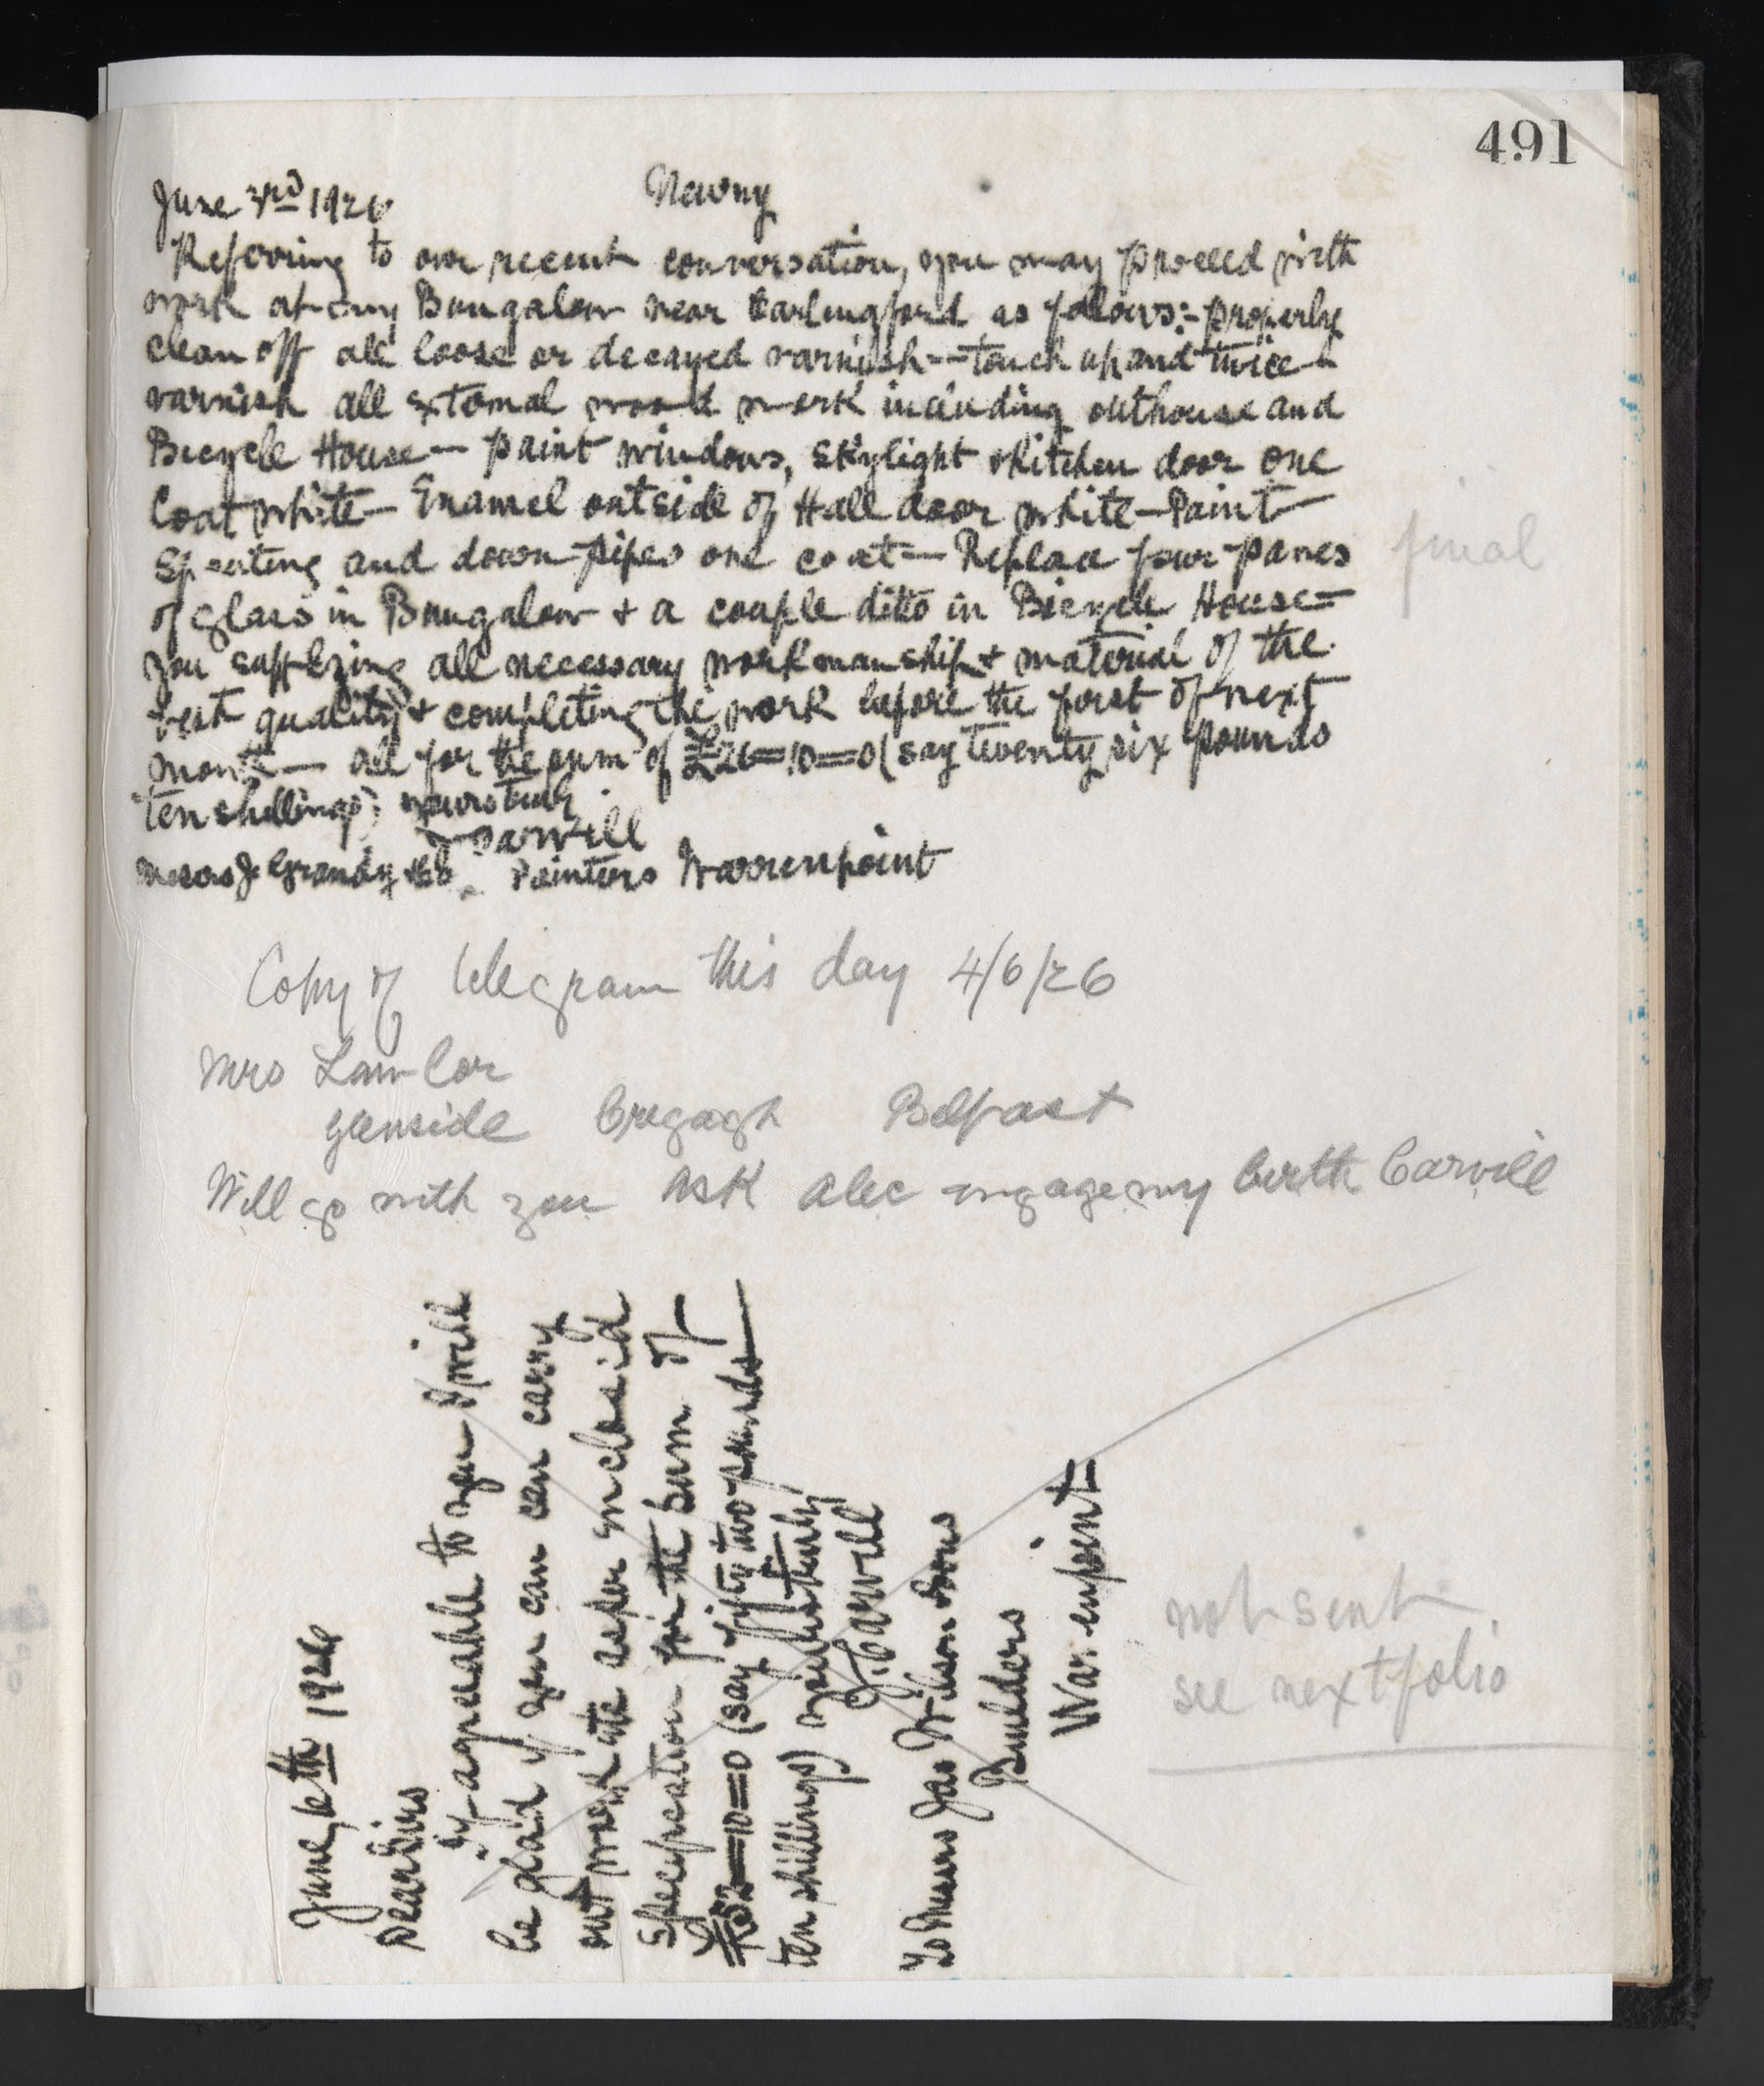 491
June 3rd 1926 Newry
Referring to our recent conversation, you may proceed with
work at my Bungalow near Carlingford as follows:- properly
clean off all loose or decayed varnish -- touch up and twice
varnish all external wood work including outhouse and
Bicycle House - paint windows, skylight & kitchen door one
Coat white - Enamel outside of Hall door white - Paint
Spouting and down pipes one coat - Replace four panes
of glass in Bungalow + a couple ditto in Bicycle House =
you supplying all necessary workmanship + material of the
best quality + completing the work before the first of next
month - all for the sum of £26=10=0 (say twenty six pounds
ten shillings) yours truly
J Carvill
Messrs J Grandy & Co Painters Warrenpoint
final
Copy of telegram this day 4/6/26
Mrs Lawlor
Glenside Cregagh Belfast
Will go with you ask alec engage my berth Carvill
June 6th 1926
Dear Sirs
If agreeable to you I will
be glad if you can can carry
out work ate as per enclosed
Specification for the sum of
£52=10=0 (say fifty two pounds
ten shillings) yours truly
J. Carvill
To Messrs Jas Wilson & Sons
Builders
Warrenpoint
not sent
see next folio